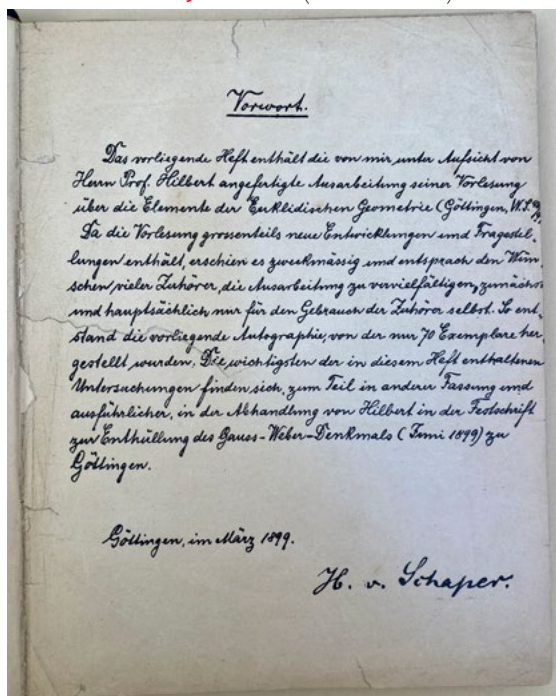 Vorwort.
Das vorliegende Heft enthält die von mir unter Aufsicht von
Herrn Prof. Hilbert angefertigte Ausarbeitung seiner Vorlesung
über die Elemente der Euklidischen Geometrie (Göttingen, W.S.
Da die Vorlesung grossenteils neue Entwicklungen und Fragestel-
lungen enthält, erschien es zweckmässig und entsprach den Wün-
schen vieler Zuhörer, die Ausarbeitung zu vervielfältigen, zunächst
und hauptsächlich nur für den Gebrauch der Zuhörer selbst. So ent-
stand die vorliegende Autographie, von der nur 70 Exemplare her-
gestellt wurden. Die wichtigsten der in diesem Heft enthaltenen
Untersuchungen finden sich, zum Teil in anderer Fassung und
ausführlicher, in der Abhandlung von Hilbert in der Festschrift
zur Enthüllung des Gauss-Weber-Denkmals (Juni 1899) zu
Göttingen.
Göttingen, im März 1899.
H. v. Schaper.